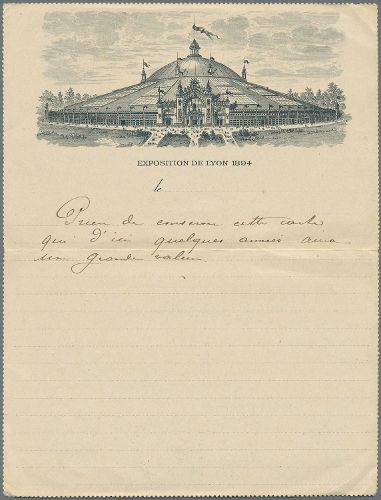 EXPOSITION DE LYON 1894
le
Prière de conserver cette carte
qui d'ici quelques années aura
une grande valeur.